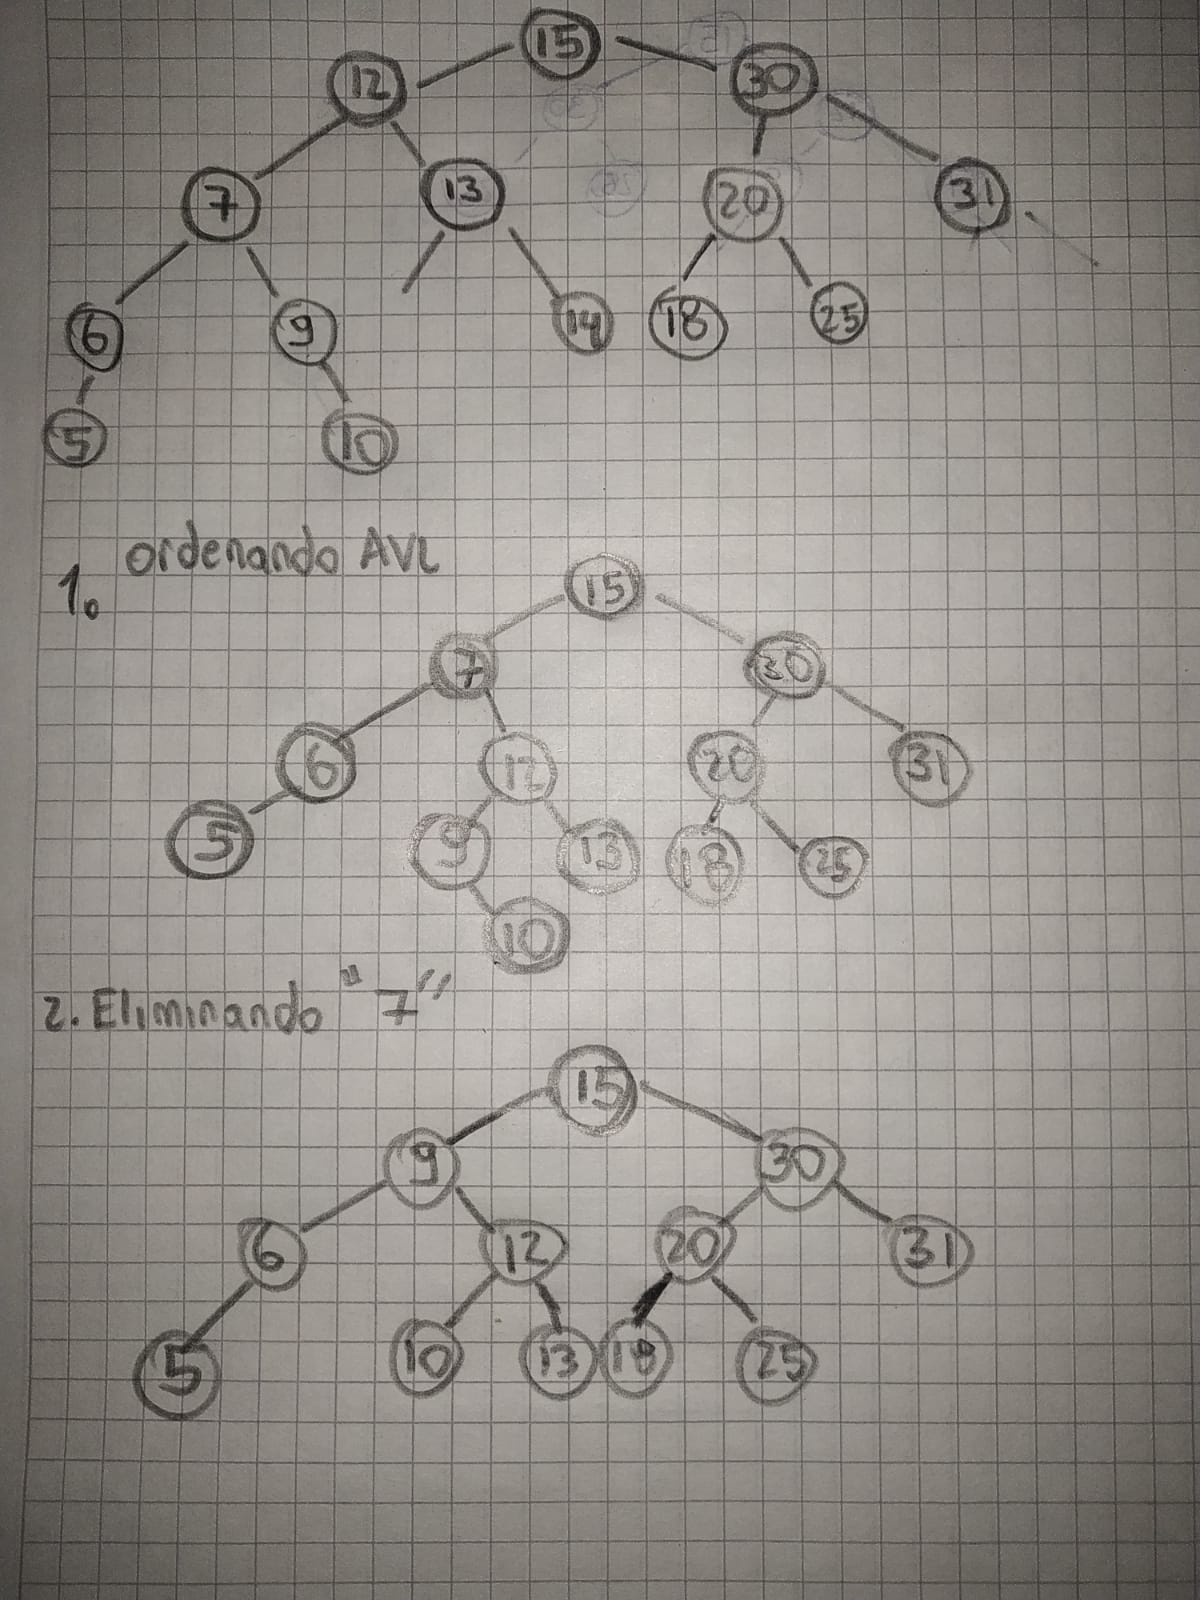 15
12 30
7 13 20 31
6 9 14 18 25
5 10
ordenando AVL
1.
15
7 30
6 12 20 31
5 9 13 18 25
10
2. Eliminando "7"
15
9 30
6 12 20 31
5 10 13 18 25